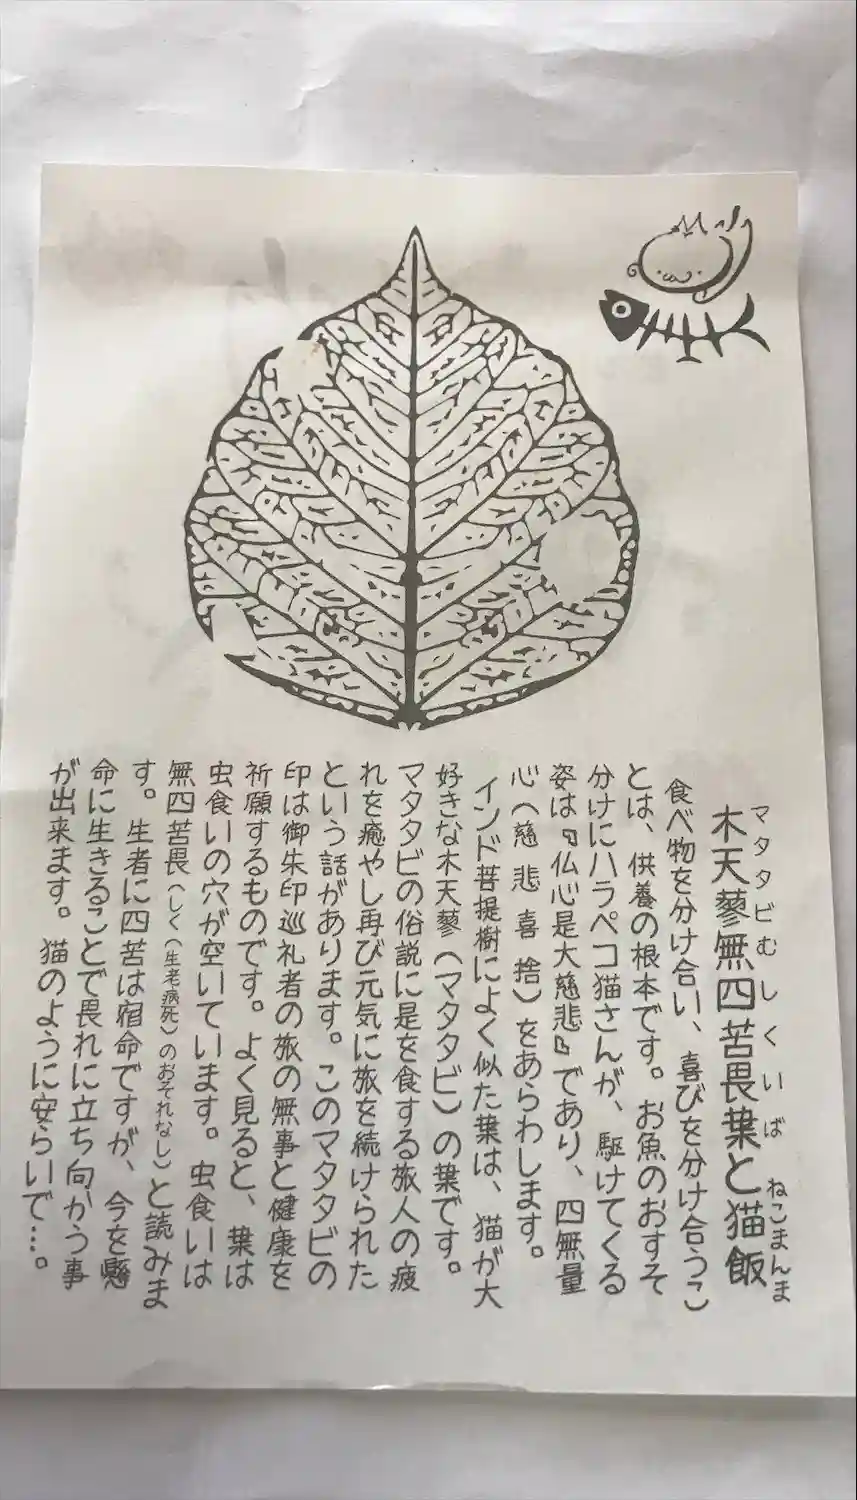 木天蓼無四苦畏葉と猫飯
マタタビむしくいば ねこまんま
食べ物を分け合い、喜びを分け合うこ
とは、供養の根本です。お魚のおすそ
分けにハラペコ猫さんが、駆けてくる
姿は『仏心是大慈悲』であり、四無量
心(慈 悲 喜 捨)をあらわします。
インド菩提樹によく似た葉は、猫が大
好きな木天蓼(マタタビ)の葉です。
マタタビの俗説に是を食する旅人の疲
れを癒やし再び元気に旅を続けられた
という話があります。このマタタビの
印は御朱印巡礼者の旅の無事と健康を
祈願するものです。よく見ると、葉は
虫食いの穴が空いています。虫食いは
無四苦畏(しく(生老病死)のおそれなし)と読みま
す。生者に四苦は宿命ですが、今を懸
命に生きることで畏れに立ち向かう事
が出来ます。猫のように安らいで…。